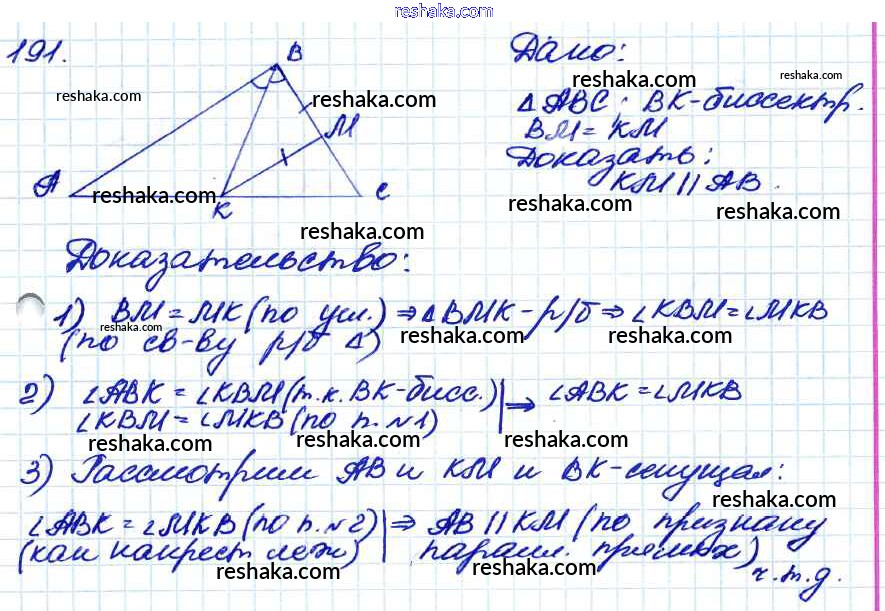 reshaka.com
191.
B
Дано:
reshaka.com
reshaka.com
reshaka.com
△ABC; BK-биссектр.
M
BM = KM
reshaka.com
Доказать:
A
reshaka.com
K
C
KM || AB.
reshaka.com
reshaka.com
reshaka.com
Доказательство:
1) BM = MK (по усл.) ⇒ △BMK - р/б ⇒ ∠KBM = ∠MKB
reshaka.com
reshaka.com
reshaka.com
(по св-ву р/б △)
2) ∠ABK = ∠KBM (т.к. BK-бисс.) | ⇒ ∠ABK = ∠MKB
∠KBM = ∠MKB (по п. №1)
reshaka.com
reshaka.com
reshaka.com
3) Рассмотрим AB и KM и BK-секущая:
reshaka.com
∠ABK = ∠MKB (по п. №2) | ⇒ AB || KM (по признаку
(как накрест леж) паралл. прямых)
reshaka.com
reshaka.com
ч.т.д.